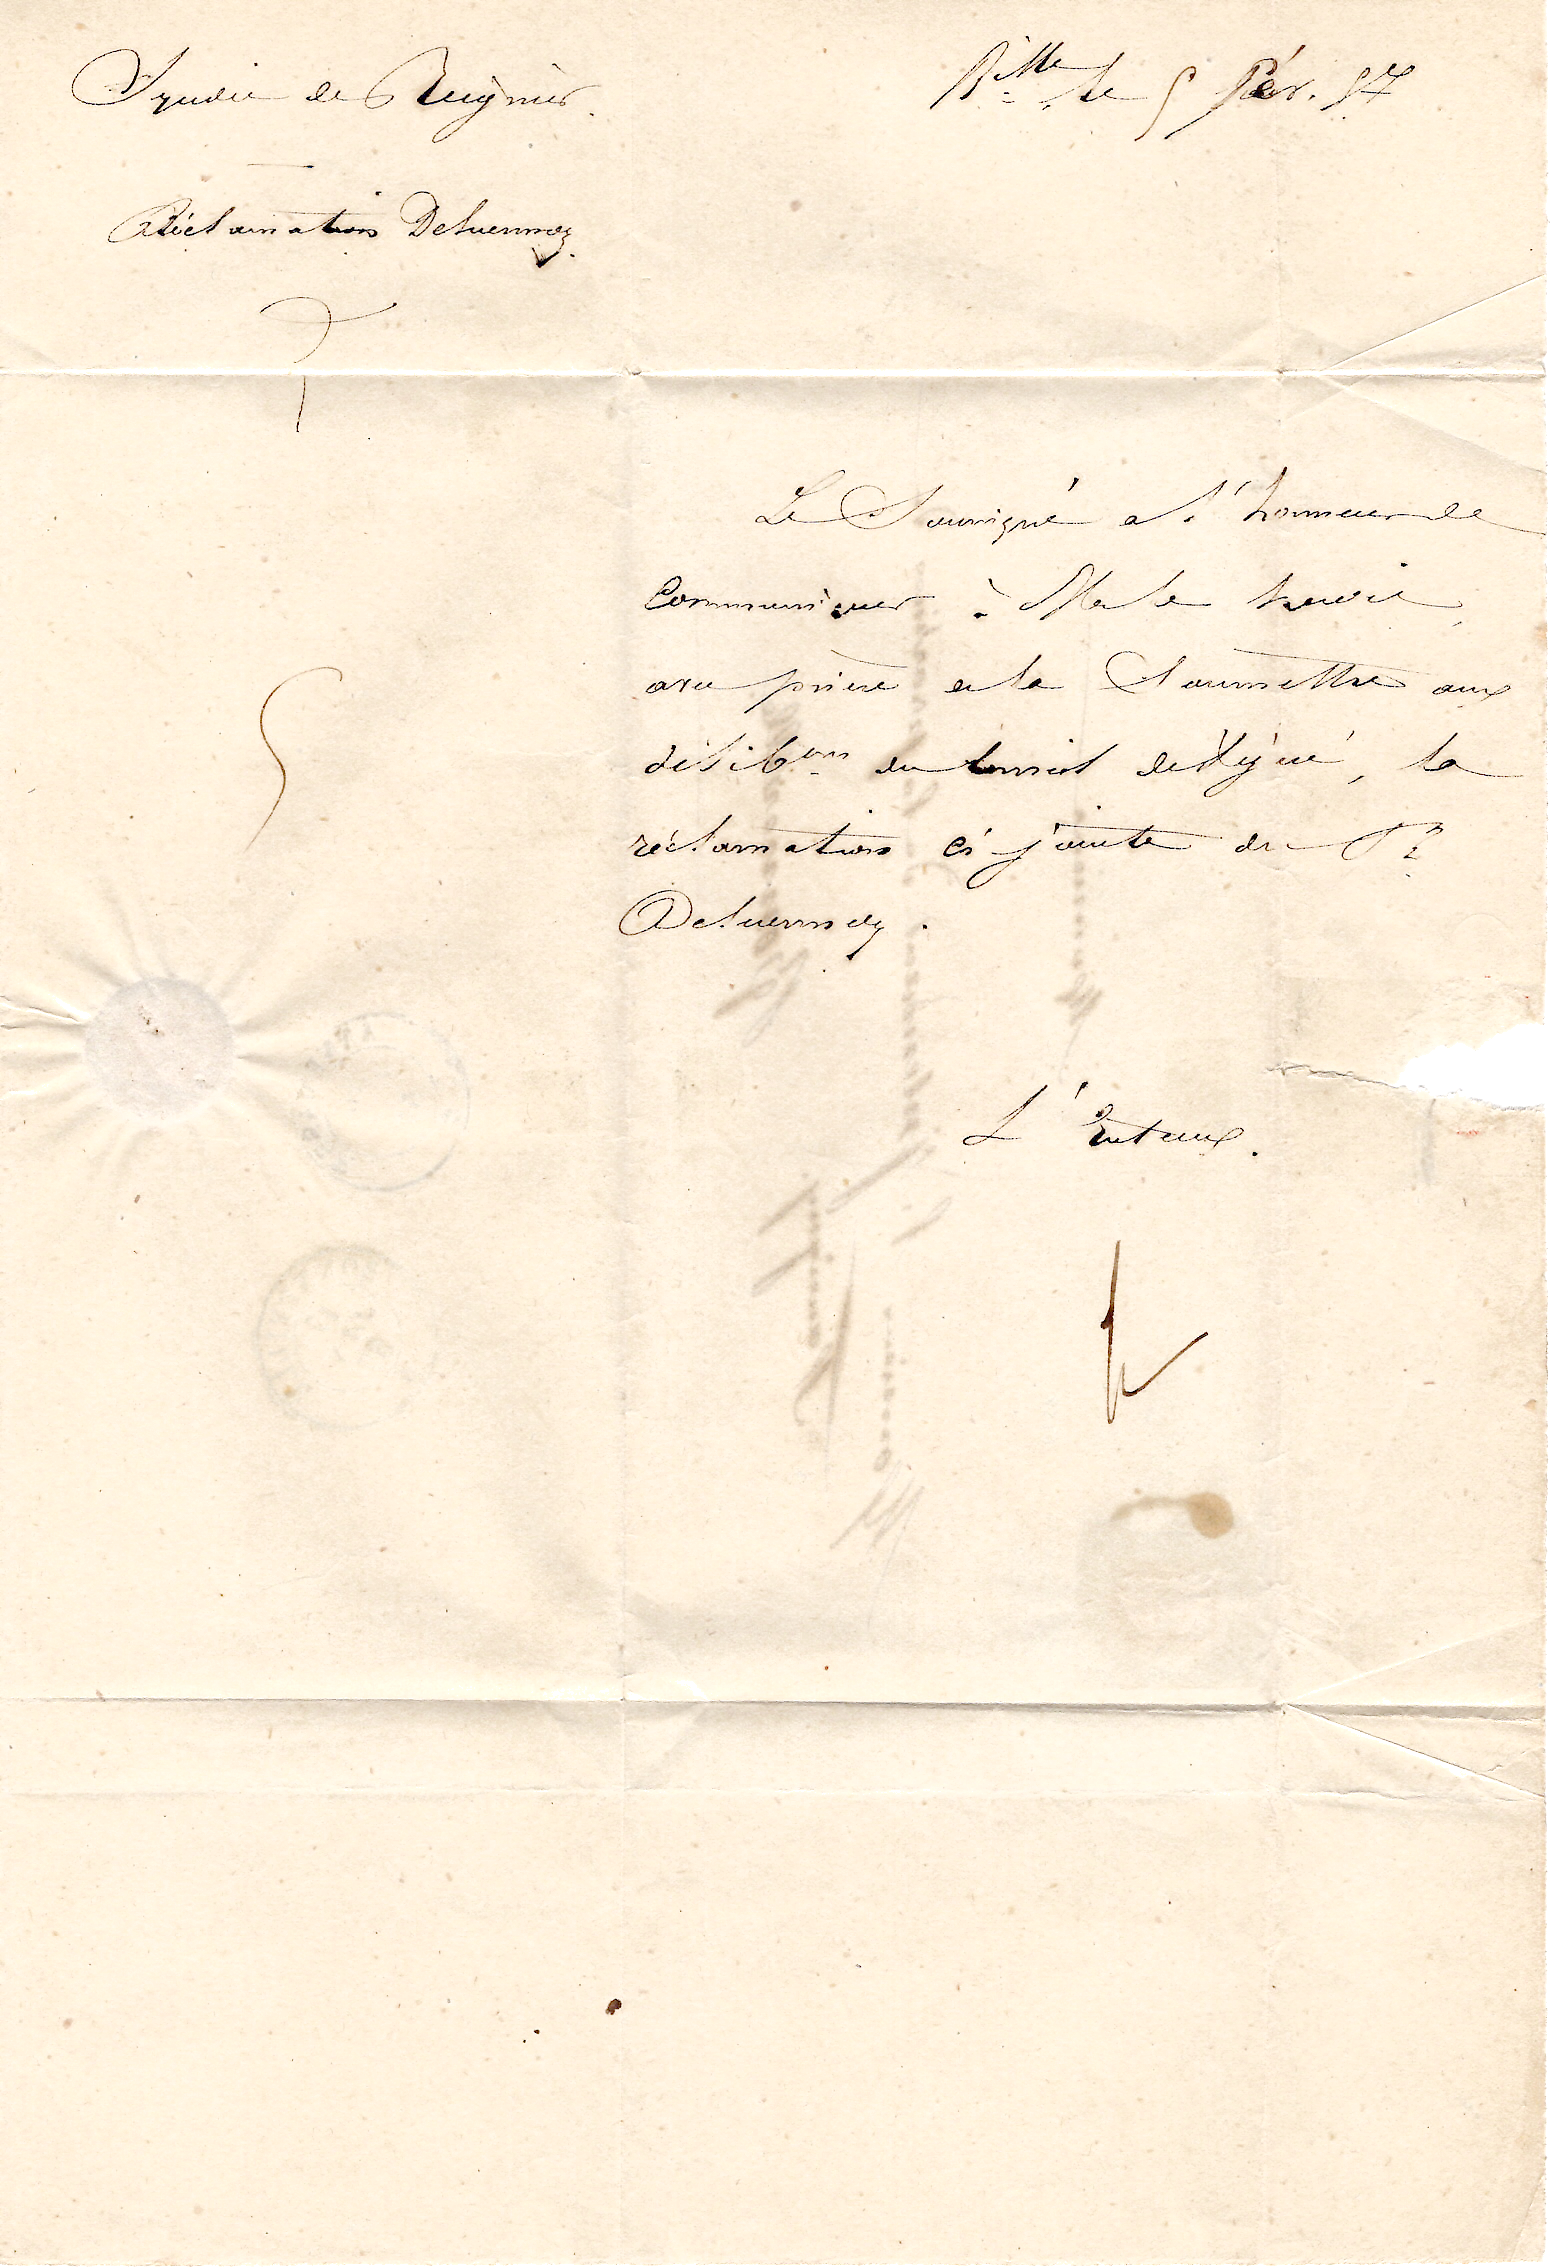 Syndic de Reignier.
Bville le 5 Fév. 57
Réclamation Deluermoz.
Le Soussigné a l'honneur de
communiquer à Mr le Syndic,
avec prière de la Soumettre aux
délibons du Conseil délégué, la
réclamation ci jointe du Sr
Deluermoz.
L'Intend.